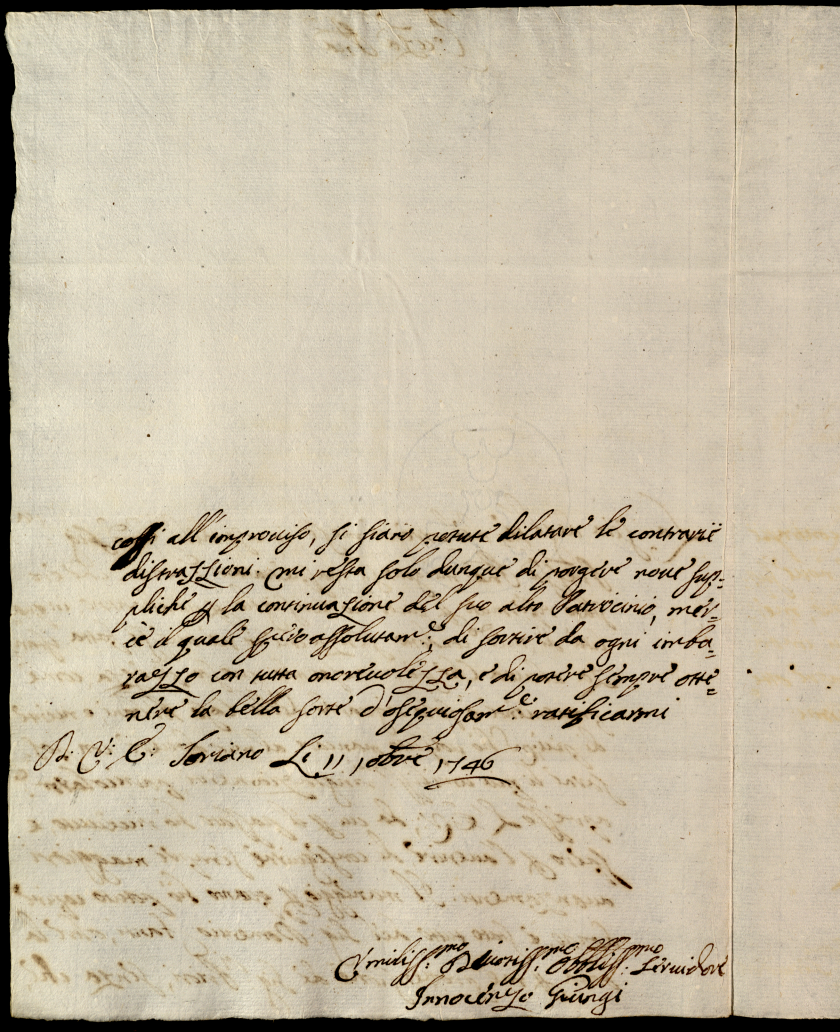 cossi all'improviso, si siano potute dilatare le contrarie
distrazzioni. mi resta solo dunque di porgere nove sup=
pliche p la continuazione del suo alto Patrocinio, mer=
cè il quale spero assolutam.e, di sortire da ogni imba=
razzo con tutta onorevolezza, e di potere sempre otte=
nere la bella sorte d'ossequiosam.e: ratificarmi
D: V: E: Soriano Li 11 1obre 1746
Umiliss.mo Devotiss.mo Obbliss.mo Servidore
Innocenzo